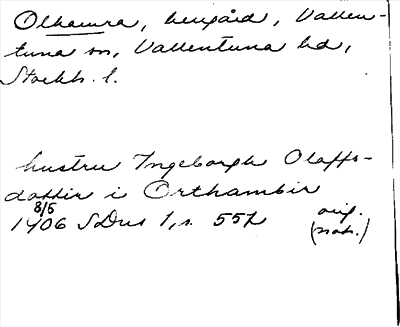 Olhamra, herrgård, Vallen-
tuna sn, Vallentuna hd,
Stockh. l.
hustru Ingeborgh Olaffs-
dotter i Orthambir
8/5
1406 SDns 1, s. 552 orig.
(rub.)